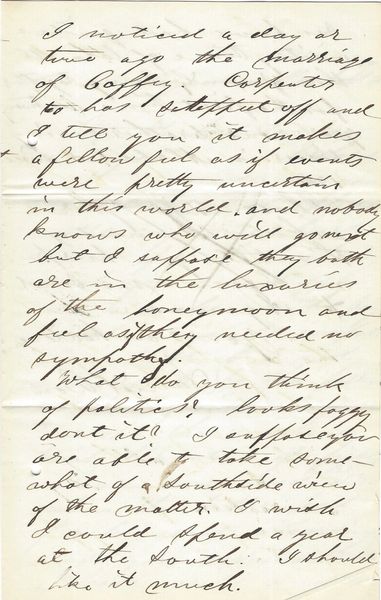 I noticed a day or
two ago the marriage
of Caffey. Carpenter
too has stept off and
I tell you it makes
a fellow feel as if events
were pretty uncertain
in this world. and nobody
knows who will go next
but I suppose they both
are in the luxuries
of the honeymoon and
feel as if they needed no
sympathy.
What do you think
of politics? looks foggy
dont it? I suppose you
are able to take some-
what of a Southside view
of the matter. I wish
I could spend a year
at the South. I should
like it much.